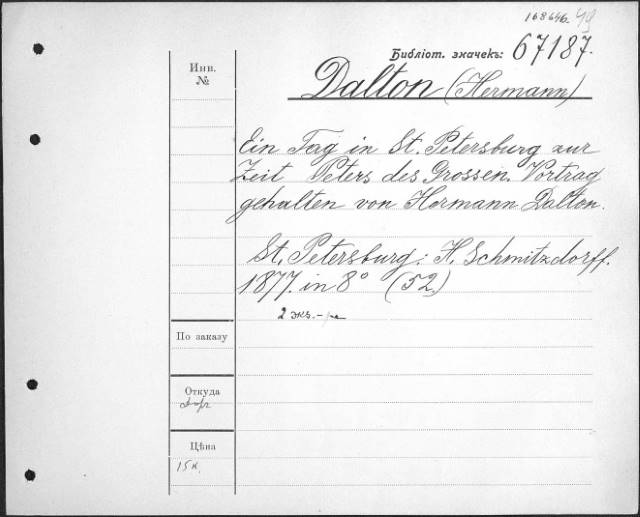 168646.
Библіот. значекъ: 67187.
Инв.
№
Dalton (Hermann)
Ein Tag in St. Petersburg zur
Zeit Peters des Grossen. Vortrag
gehalten von Hermann Dalton.
St. Petersburg: H. Schmitzdorff.
1877. in 8° (52)
2 экз.
По заказу
Откуда
Цѣна
15 к.